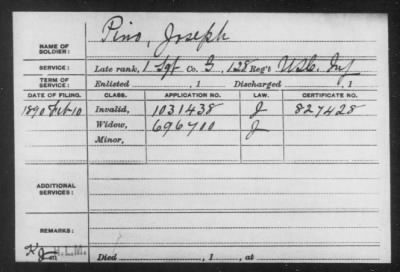 NAME OF SOLDIER: Pino, Joseph
SERVICE: Late rank, 1 Sgt Co. G, 128 Reg't U.S.C. Inf
TERM OF SERVICE: Enlisted , 1 Discharged , 1
DATE OF FILING. CLASS. APPLICATION NO. LAW. CERTIFICATE NO.
1890 Feb 10 Invalid, 1031438 J 827428
Widow, 696700 J
Minor,
ADDITIONAL SERVICES:
REMARKS:
H.L.M.
Died , 1 , at